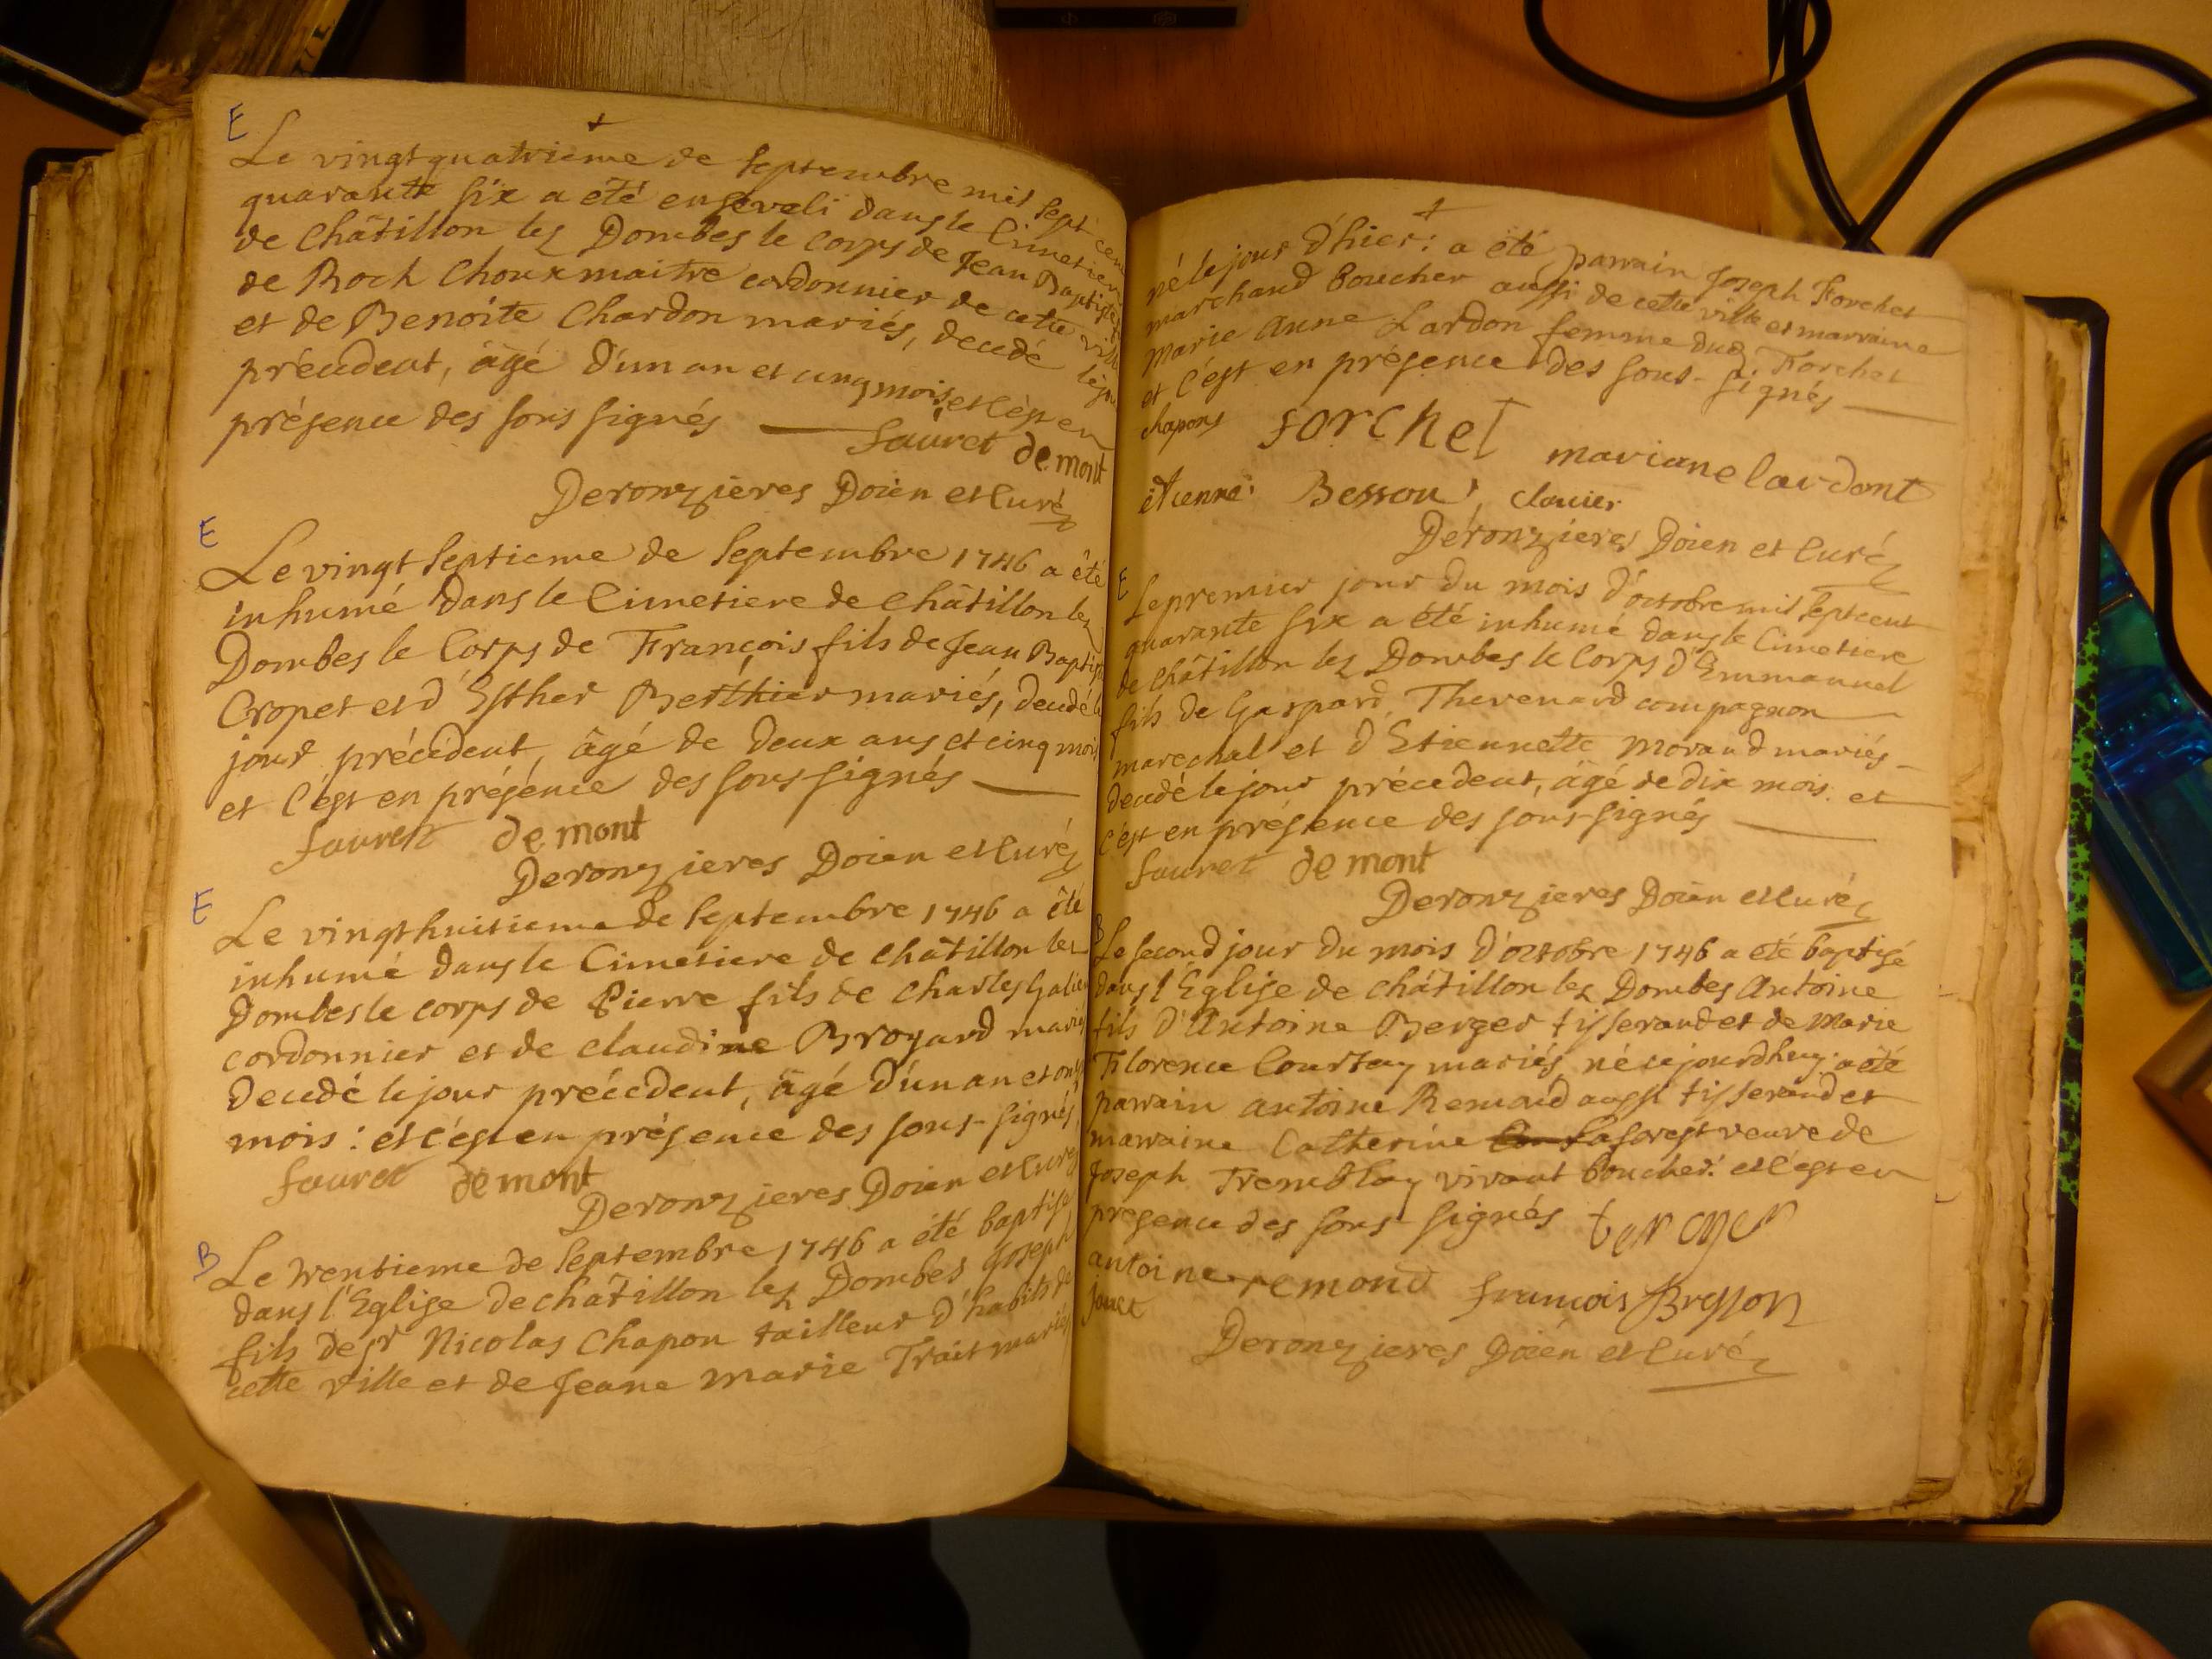 E
Le vingt quatrieme de septembre mil sept cent
quarante six a été enseveli dans le Cimetiere
de Châtillon lez Dombes le corps de Jean Baptiste
de Roch Choux maitre cordonnier de cette ville
et de Benoite Chardon mariés, decedé le jour
précedent, âgé d'un an et cinq mois, et c'est en
présence des sous signés
fauret de mont
Deronzieres Doien et Curé
E
Le vingt septieme de septembre 1746 a été
inhumé dans le Cimetiere de châtillon lez
Dombes le Corps de François fils de Jean Baptiste
Cropet et d'Esther Berthier mariés, decedé le
jour précédent, âgé de deux ans et cinq mois
et c'est en présence des sous signés
fauret de mont
Deronzieres Doien et Curé
E
Le vingt huitieme de septembre 1746 a été
inhumé dans le Cimetiere de châtillon lez
Dombes le corps de Pierre fils de Charles Galien
cordonnier et de claudine Broyard mariés
decedé le jour précédent, âgé d'un an et onze
mois : et c'est en présence des sous-signés
fauret de mont
Deronzieres Doien et Curé
B
Le trentieme de septembre 1746 a été baptisé
dans l'Eglise de châtillon lez Dombes Joseph
fils de sr Nicolas Chapon tailleur d'habits de
cette ville et de Jeane marie Trait mariés
né le jour d'hier : a été parrain Joseph Forchet
marchand Boucher aussi de cette ville et marraine
Marie Anne Lardon femme dud. Forchet
et c'est en présence des sous-signés
chapons forchet mariane lardont
étienne Besson clavier
Deronzieres Doien et Curé
E
Le premier jour du mois d'octobre mil sept cent
quarante six a été inhumé dans le Cimetiere
de châtillon lez Dombes le Corps d'Emmanuel
fils de Gaspard Thevenard compagnon
marechal et d'Etiennette Morand mariés
decedé le jour précédent, âgé de dix mois. et
c'est en présence des sous-signés
fauret de mont
Deronzieres Doien et Curé
B
Le second jour du mois d'octobre 1746 a été baptisé
dans l'Eglise de châtillon lez Dombes Antoine
fils d'Antoine Berger tisserand et de Marie
Florence Courtay mariés, né cejourdhuy. a été
parrain antoine Remond aussi tisserand et
marraine Catherine Laforest veuve de
Joseph Tremblay vivant boucher. et c'est en
présence des sous-signés berger
antoine remond françois Bresson
jouet
Deronzieres Doien et Curé